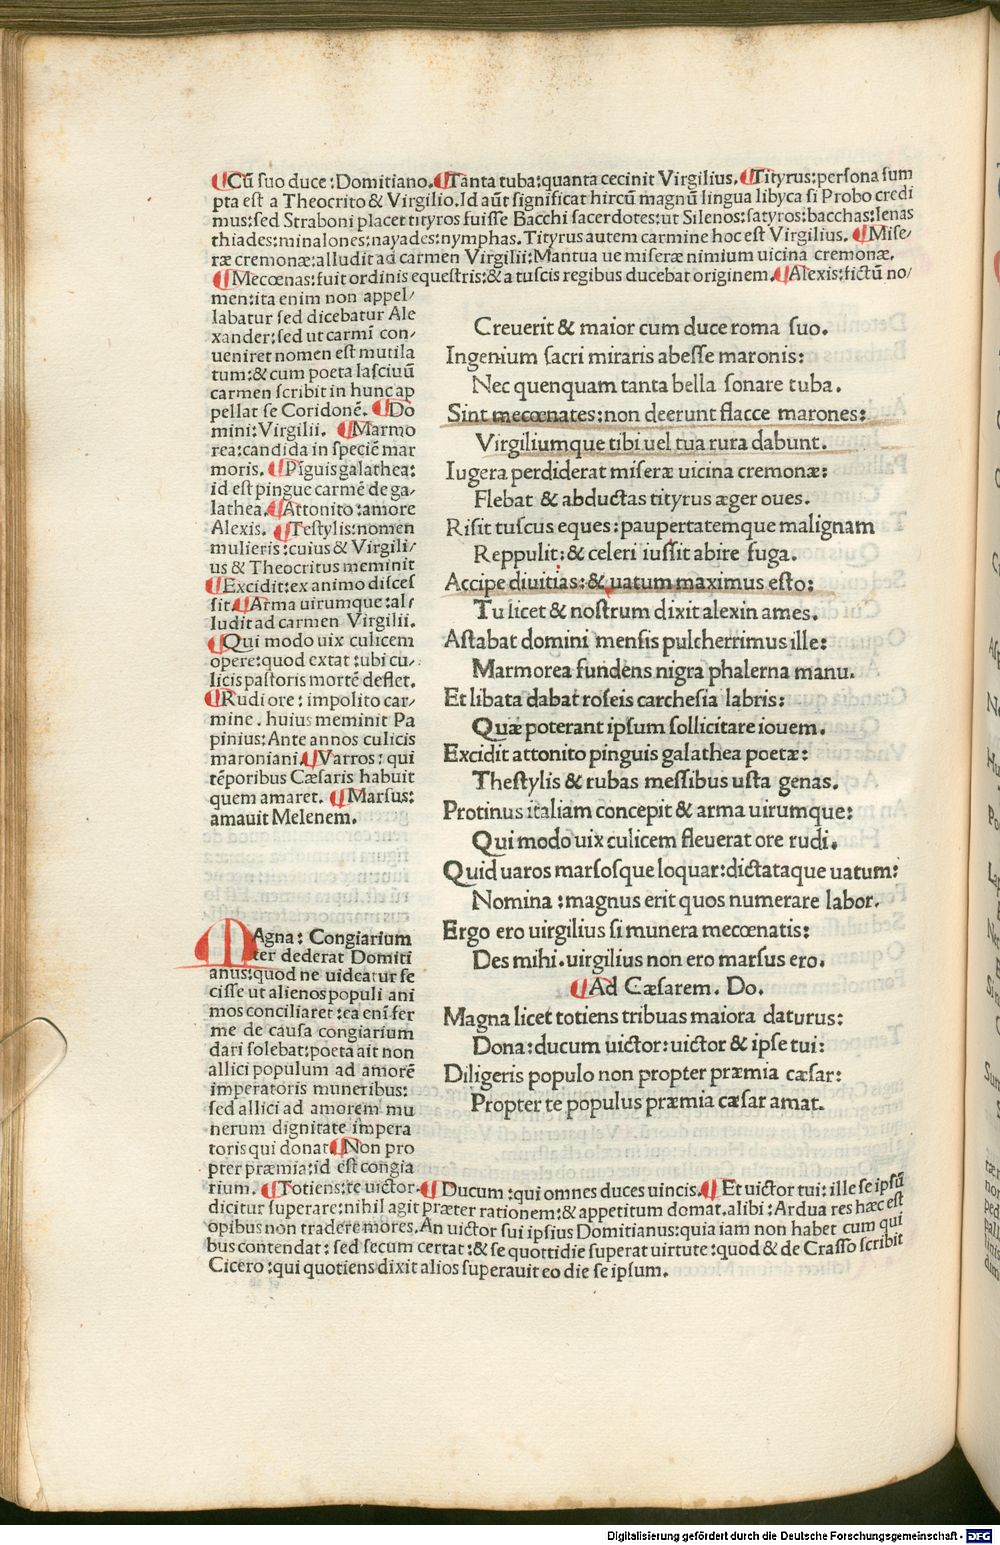 ⸿Cū suo duce:Domitiano.⸿Tanta tuba:quanta cecinit Virgilius.⸿Tityrus:persona sum
pta est a Theocrito & Virgilio.Id aūt significat hircū magnū lingua libyca si Probo credi
mus:sed Straboni placet tityros fuisse Bacchi sacerdotes:ut Silenos:satyros:bacchas:lenas
thiades:minalones:nayades:nymphas.Tityrus autem carmine hoc est Virgilius. ⸿Mise/
ræ cremonæ:alludit ad carmen Virgilii:Mantua ue miseræ nimium uicina cremonæ.
⸿Mecœnas:fuit ordinis equestris:& a tuscis regibus ducebat originem.⸿Alexis:fictū no/
men:ita enim non appel/
labatur sed dicebatur Ale
xander:sed ut carmī con/
ueniret nomen est mutila
tum:& cum poeta lasciuū
carmen scribit in hunc ap
pellat se Coridonē. ⸿Do
mini:Virgilii. ⸿Marmo
rea:candida in speciē mar
moris. ⸿Pīguis galathea:
id est pingue carmē de ga/
lathea.⸿Attonito:amore
Alexis. ⸿Testylis:nomen
mulieris:cuius & Virgili/
us & Theocritus meminit
⸿Excidit:ex animo disces
sit.⸿Arma uirumque:al/
ludit ad carmen Virgilii.
⸿Qui modo uix culicem
opere:quod extat:ubi cu/
licis pastoris mortē deflet.
⸿Rudi ore:impolito car/
mine.huius meminit Pa
pinius:Ante annos culicis
maroniani.⸿Varros:qui
tēporibus Cæsaris habuit
quem amaret. ⸿Marsus:
amauit Melenem.
MAgna: Congiarium
ter dederat Domiti
anus:quod ne uideatur se
cisse ut alienos populi ani
mos conciliaret:ea enī fer
me de causa congiarium
dari solebat:poeta ait non
allici populum ad amorē
imperatoris muneribus:
sed allici ad amorem mu
nerum dignitate impera
toris qui donat.⸿Non pro
pter præmia:id est congia
rium. ⸿Totiens:te uictor.⸿Ducum:qui omnes duces uincis.⸿Et uictor tui:ille se ipsū
dicitur superare:nihil agit præter rationem:& appetitum domat.alibi:Ardua res hæc est
opibus non tradere mores.An uictor sui ipsius Domitianus:quia iam non habet cum qui
bus contendat:sed secum certat:& se quottidie superat uirtute:quod & de Crasso scribit
Cicero:qui quotiens dixit alios superauit eo die se ipsum.
Creuerit & maior cum duce roma suo.
Ingenium sacri miraris abesse maronis:
Nec quenquam tanta bella sonare tuba.
Sint mecœnates:non deerunt flacce marones:
Virgiliumque tibi uel tua rura dabunt.
Iugera perdiderat miseræ uicina cremonæ:
Flebat & abductas tityrus æger oues.
Risit tuscus eques:paupertatemque malignam
Reppulit:& celeri iussit abire fuga.
Accipe diuitias:& uatum maximus esto:
Tu licet & nostrum dixit alexin ames.
Astabat domini mensis pulcherrimus ille:
Marmorea fundens nigra phalerna manu.
Et libata dabat roseis carchesia labris:
Quæ poterant ipsum sollicitare iouem.
Excidit attonito pinguis galathea poetæ:
Thestylis & rubas messibus usta genas.
Protinus italiam concepit & arma uirumque:
Qui modo uix culicem fleuerat ore rudi.
Quid uaros marsosque loquar:dictataque uatum:
Nomina:magnus erit quos numerare labor.
Ergo ero uirgilius si munera mecœnatis:
Des mihi.uirgilius non ero marsus ero.
⸿Ad Cæsarem. Do.
Magna licet totiens tribuas maiora daturus:
Dona:ducum uictor:uictor & ipse tui:
Diligeris populo non propter præmia cæsar:
Propter te populus præmia cæsar amat.
Digitalisierung gefördert durch die Deutsche Forschungsgemeinschaft - DFG